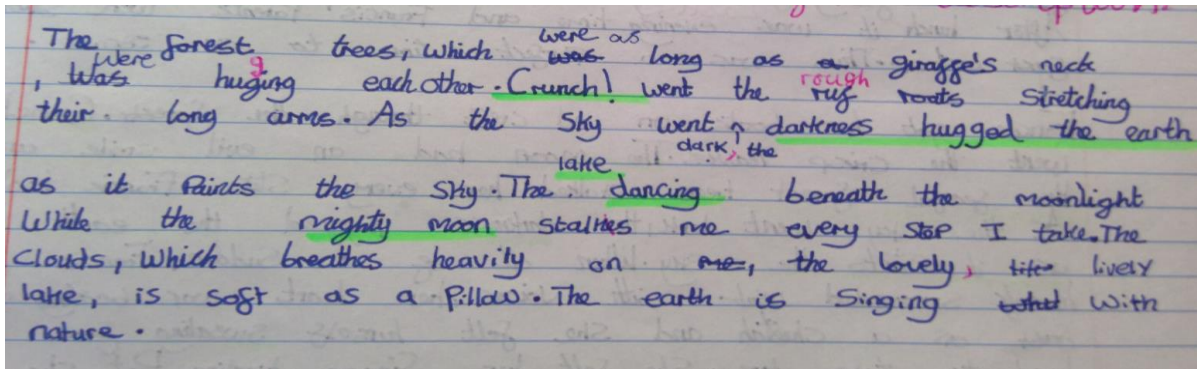 The forest trees, which were as was long as a giraffe's neck
, was were huging g each other. Crunch! went the rough ruf roots stretching
their long arms. As the sky went dark, the darkness hugged the earth
as it Paints the sky. The lake dancing beneath the moonlight
While the mighty moon stalkes me every step I take. The
clouds, which breathes heavily on me, the lovely, lively
lake, is soft as a Pillow. The earth is Singing with
nature.